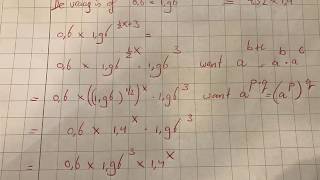 De vraag is of 0,6 × 1,96 =
0,6 × 1,96^{½x+3} =
0,6 × 1,96^{½x} · 1,96^3 want a^{b+c} = a^b · a^c
= 0,6 × ((1,96)^{1/2})^x · 1,96^3 want a^{p·q} = (a^p)^q
= 0,6 × 1,4^x · 1,96^3
= 0,6 × 1,96^3 × 1,4^x